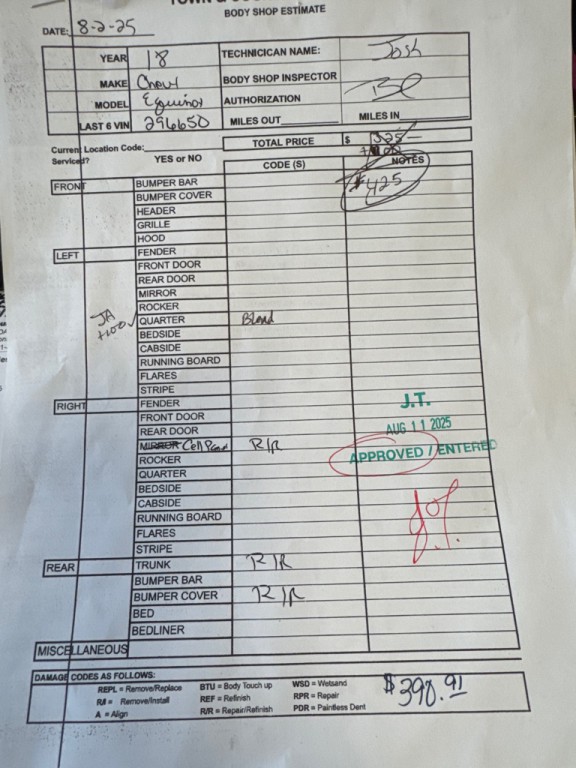 BODY SHOP ESTIMATE
DATE: 8-2-25
YEAR 18 TECHNICICAN NAME: Josh
MAKE Chevy BODY SHOP INSPECTOR
MODEL Equinox AUTHORIZATION
LAST 6 VIN 296650 MILES OUT MILES IN
Current Location Code: TOTAL PRICE $ 325
Serviced? YES or NO CODE (S) +100 NOTES
$425
FRONT BUMPER BAR
BUMPER COVER
HEADER
GRILLE
HOOD
LEFT FENDER
FRONT DOOR
REAR DOOR
MIRROR
ROCKER
JA +100 ✓ QUARTER Blend
BEDSIDE
CABSIDE
RUNNING BOARD
FLARES
STRIPE
RIGHT FENDER
J.T.
FRONT DOOR
AUG 11 2025
REAR DOOR
APPROVED / ENTERED
MIRROR R/R
ROCKER
QUARTER
BEDSIDE
CABSIDE
RUNNING BOARD
FLARES
STRIPE
REAR TRUNK R/R
BUMPER BAR
BUMPER COVER R/R
BED
BEDLINER
MISCELLANEOUS
DAMAGE CODES AS FOLLOWS:
REPL = Remove/Replace BTU = Body Touch up WSD = Wetsand
R/I = Remove/Install REF = Refinish RPR = Repair
A = Align R/R = Repair/Refinish PDR = Paintless Dent
$398.91